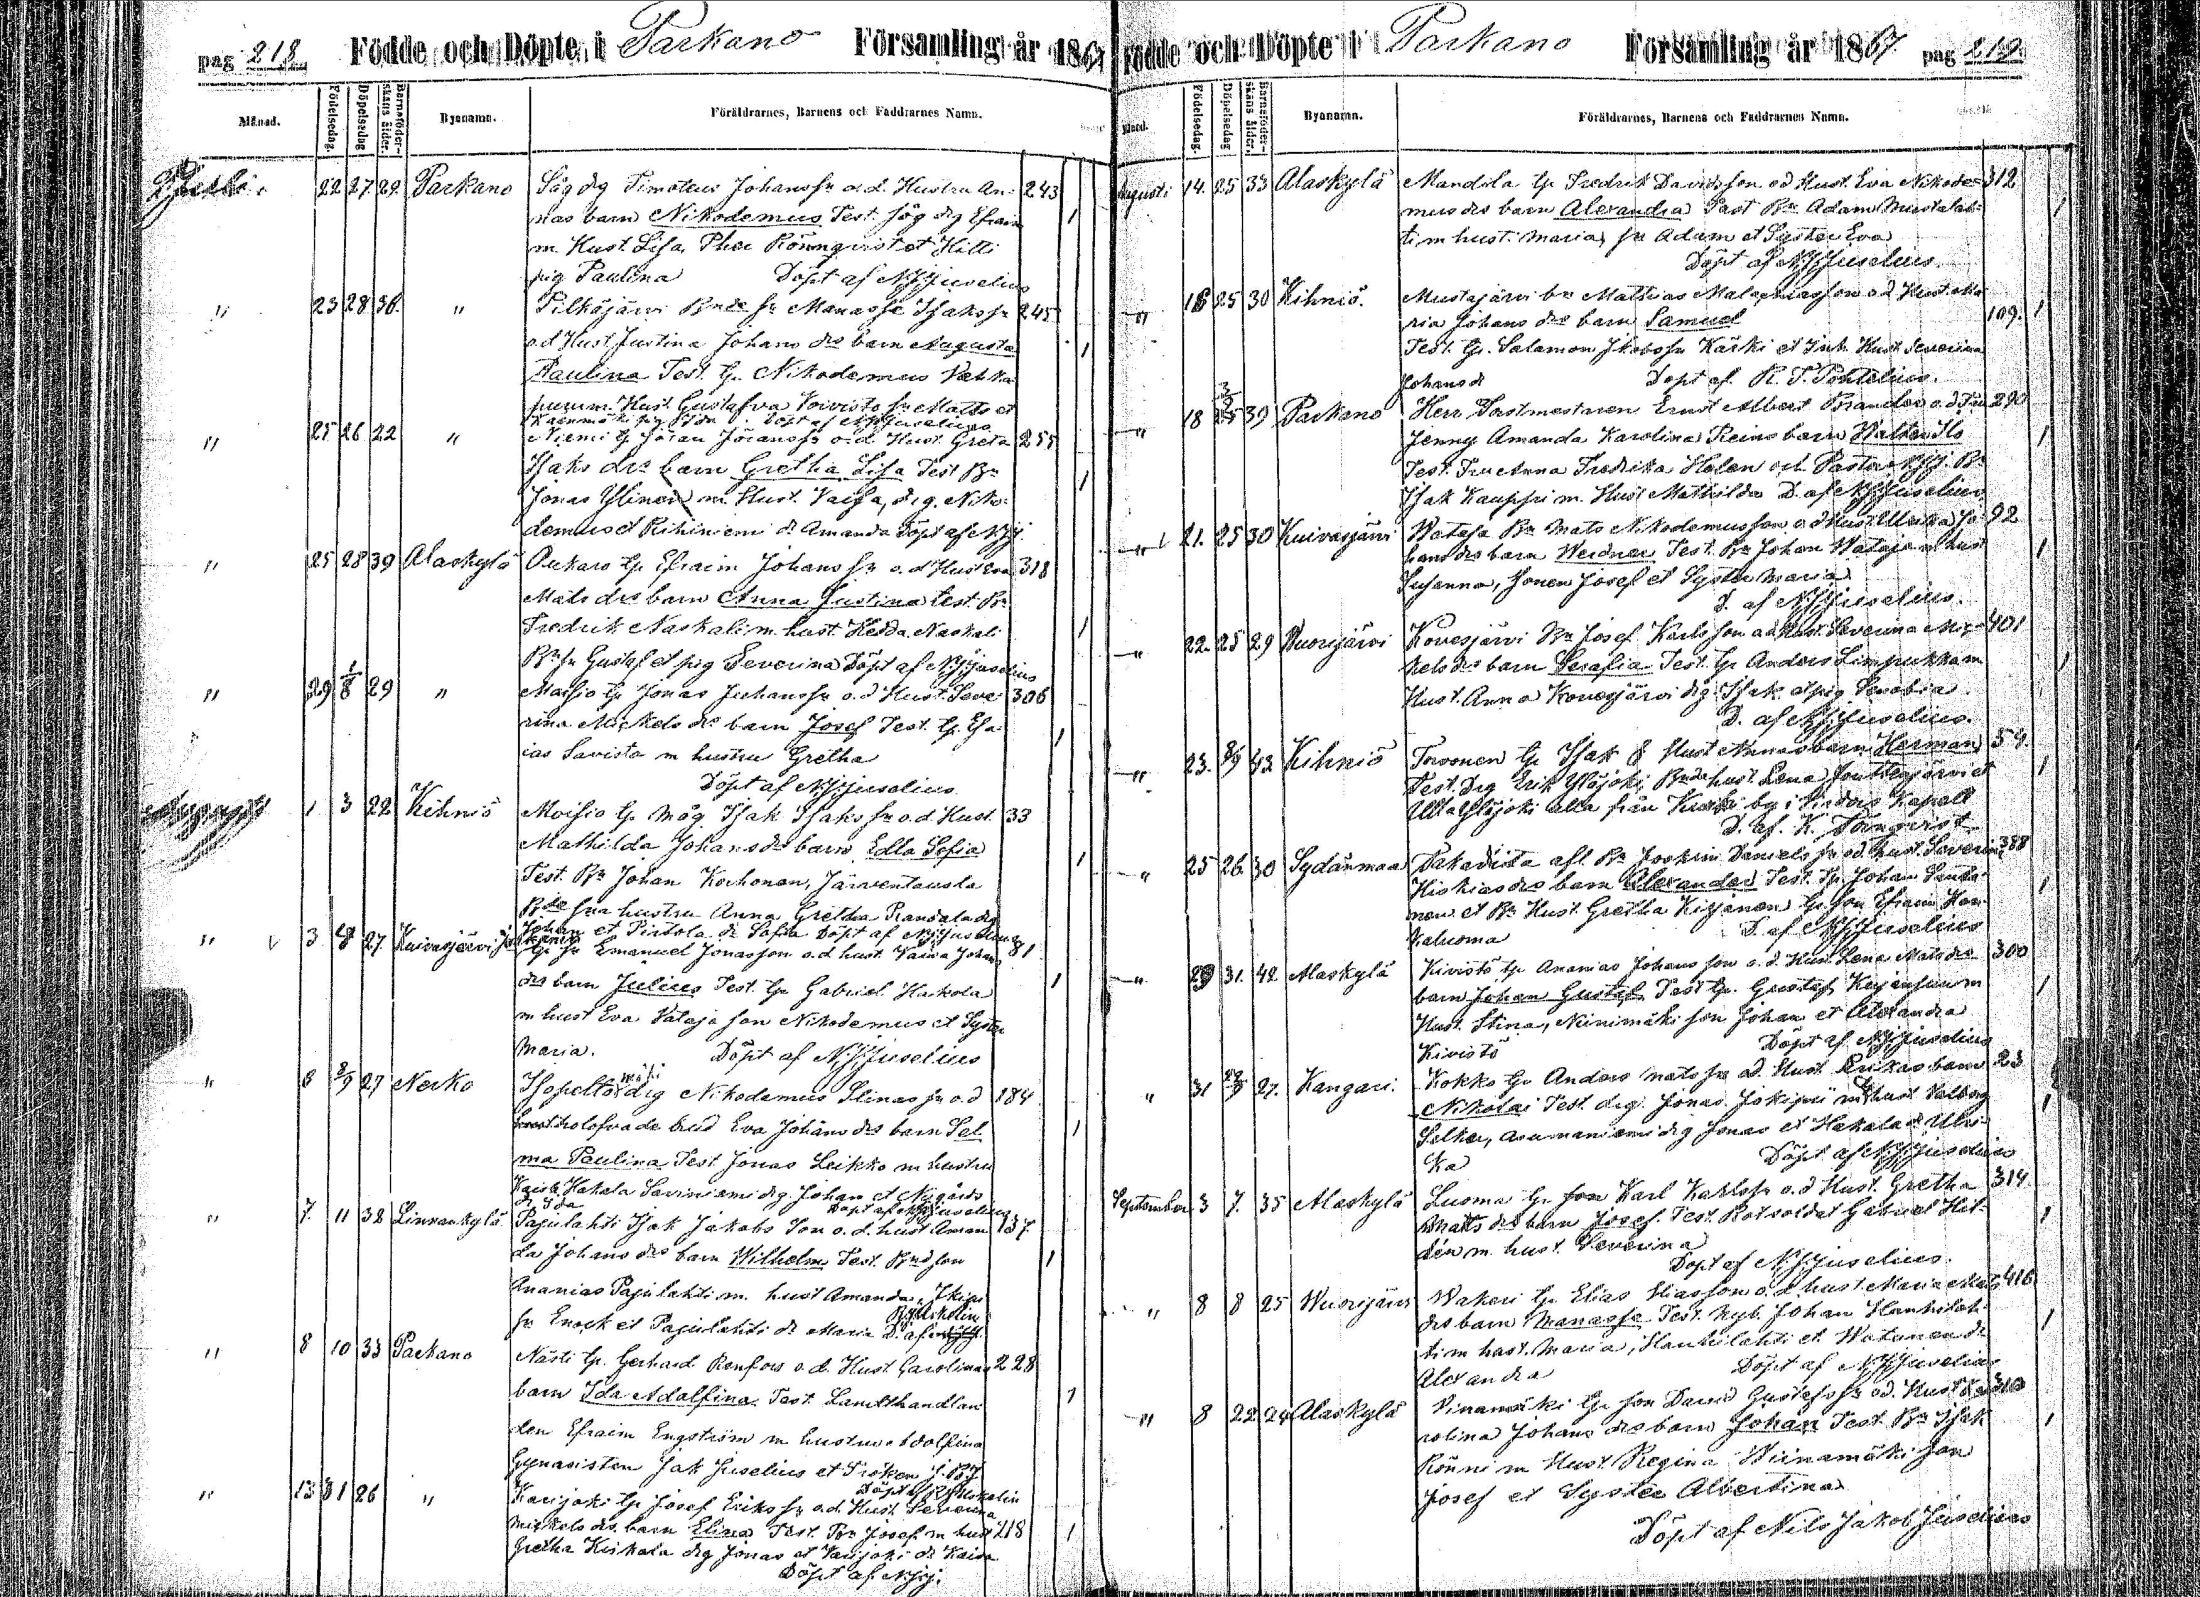 pag 218. Födde och Döpte i Parkano Församling år 1867
Månad. Födelsedag. Döpelsedag Barnaföderskans ålder. Byanamn. Föräldrarnes, Barnens och Faddrarnes Namn.
22 27 29. Parkano Såg drg Timoteus Johansss sn o.d. Hustru An- 243
nas barn Nikodemus Test. Såg drg Efraim 1
m. Hust. Lisa, Rönnqvist et Kitti
pig Paulina Döpt af N J Juselius
" 23 28 36. " Pilkäjärvi Bnde sn Manasse Isaks sn 245
o.d Hust. Justina Johans drs barn Augusta 1
Paulina Test. Tp. Nikodemus Vehka
purum. Hust. Gustafva Koivisto sn Matts et
Döpt af N J Juselius
" 25 26 22 " Niemi Tp Jöran Jörans sn o.d. Hust. Greta 255
Isaks drs barn Gretha Lisa Test Bn 1
Jonas Ylinen m. Hust. Vaisa, drg. Niko-
demus et Rihiniemi dr Amanda Döpt af N J J.
" 25 28 39 Alaskylä Oukaro tp Efraim Johans sn o.d Hust Eva 318
Mats drs barn Anna Justina test. Bn
Fredrik Naskali m. hust. Hedda, Naskali 1
Bn sn Gustaf et pig Severina Döpt af N J Juselius
" 29 1/8 29 " Maisio tp Jonas Juhans sn o.d Hust. Seve 306
rina Mickels drs barn Josef Test. tp. Esa-
ias Savista m hustru Gretha 1
Döpt af N J Juselius
1 3 22 Kihniö Moisio tp måg Isak Isaks sn o.d Hust. 33
Mathilda Johans drs barn Edla Sofia
Test. Bn Johan Korhonen, Järventausta 1
Bnde sns hustru Anna Gretha Randala drg
Johan et Pirttola dr Sofia Döpt af N J Juselius
" v 3 4/8 27 Kuivasjärvi tp sn Emanuel Jonasson o.d hust. Kaisa Johans 81
drs barn Julius Test. tp Gabriel Harkola 1
m hust Eva Vataja son Nikodemus et Syster
Maria. Döpt af N J Juselius
" 6 8/9 27 Nerko drg Nikodemus Elinas sn o.d 184
trolofvade brud Eva Johans drs barn Sel 1
ma Paulina Test Jonas Leikko m hustru
Kaisa, Hakala Saviniemi drg. Johan et Nygårds
dr Ida Döpt af N J Juselius
" 7 11 38 Linnankylä Pajulahti Isak Jakobs son o.d. hust Aman 157.
da Johans drs barn Wilhelm Test. Bnd son 1
Ananias Pajulahti m. hust Amanda,
sn Enock et Pajulahti dr Maria D. af
" 8 10 33 Parkano Nästi tp. Gerhard Renfors o.d. Hust Carolinas 228
barn Ida Adolfina Test. Landthandlan 1
den Efraim Engström m hustru Adolfina
Gymnasisten Jak Juselius et Fröken
Döpt af
" 13 31 26 " Karijoki tp Josef Eriks sn o.d. Hust. Severina
Mickels drs barn Elina Test. Bn Josef m hust 218 1
Gretha Kiskala drg Jonas et Karijoki dr Kaisa
Döpt af N J J.
Födde och Döpte i Parkano Församling år 1867. pag 219.
Månad. Födelsedag. Döpelsedag Barnaföderskans ålder. Byanamn. Föräldrarnes, Barnens och Faddrarnes Namn.
Augusti 14. 25 33 Alaskylä Mandila tp Fredrik Davidsson o.d Hust. Eva Nikode- 312
mus drs barn Alexandra Test Bn Adam Mustalah- 1
ti m hust. Maria, sn Adam et Syster Eva
Döpt af N J Juselius.
" 16 25 30 Kihniö. Mustajärvi bn Mathias Malakiasson o.d Hust. Ma
ria Johans drs barn Samuel 109. 1
Test. tp. Salamon Jkobs sn Kärki et Inh. Hust Severina
Johans dr Döpt af. K. T. Pontelius.
" 18 3/25 39 Parkano Herr Forstmestaren Ernst Albert Brander o.d Fru 290
Jenny Amanda Karolina Reins barn Walter Ilo 1
Test. Fru Anna Fredrika Helen och Pastor N J J. Bn
Isak Kauppi m. Hust Mathilda D. af N J Juselius
" 21. 25 30 Kuivasjärvi Wataja Bn Mats Nikodemusson o.d Hust Ulrika Jo 92
hans drs barn Werdner Test. Bn Johan Wataja m hust 1
Susanna, sonen Josef et Syster Maria
D. af N J Juselius.
" 22. 25 29 Wuorijärvi Kovesjärvi Bn Josef Karlsson o.d Hust. Severina Mic- 401
kels drs barn Serafia Test. tp Anders Limpukka m 1
Hust. Anna Kovesjärvi drg. Isak et pig Senobia
D. af N J Juselius.
" 23. 8/9 43 Kihniö Torvonen tp Isak & Hust Annas barn Herman 54.
Test. drg Erik Ylöjoki, Bnde hust. Lena et 1
Ylöjoki alla från by i Wirdois Kapell
D. af. K. Törnqvist
" 25 26 30 Sydänmaa afl. Bn Daniels sn o.d. hust. Severina 388
Hiskias drs barn Alexander Test. Tp. Johan 1
nen et Bn Hust. Gretha tp. son Efraim
kaluoma D. af N J Juselius
" 29 31. 42. Alaskylä Kivistö tp Ananias Johans son o.d. Hust Lena Mats drs 300
barn Johan Gustaf, Test tp. Gustaf m 1
Hust. Stina, Niinimäki son Johan et Alexandra
Kivistö Döpt af. N J Juselius
" 31 27. Kangari. Kokko tp Anders Mats sn o.d. Hust Erikas barn 23
Nikolai Test. drg. Jonas Jokipii m hust Valborg 1
Selker, Asumaniemi drg Jonas et Hakala dr Ulri-
ka Döpt af N J Juselius
September 3 7. 35 Alaskylä Luoma tp son Karl Karls sn o.d Hust. Gretha 314
Matts drs barn Josef. Test. Rotsoldat Gabriel Hil- 1
dén m. hust. Severina
Döpt af N J Juselius.
" 8 8 25 Wuorijärvi Wakeri tp Elias Eliasson o.d. hust Maria Mats 416
drs barn Manasse Test. nyb. Johan Hanhilah- 1
ti m hust. Maria, Hanhilahti et Watunen dr
Alexandra Döpt af N J Juselius
" 8 22 24 Alaskylä Vinamäki tp son David Gustafs sn o.d. Hust Ka 310
rolina Johans drs barn Johan Test. Bn Isak 1
Rönni m Hust. Regina Wiinamäki son
Josef et Syster Albertina
Döpt af Nils Jakob Juselius